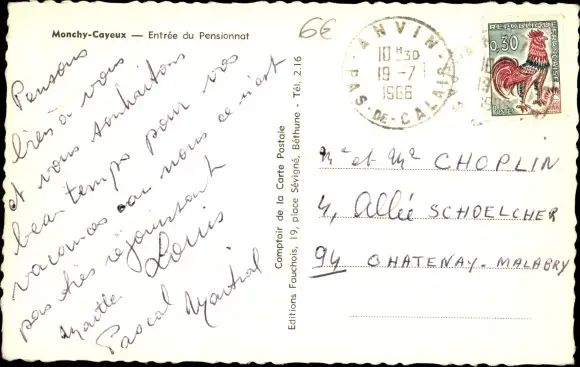 Monchy-Cayeux — Entrée du Pensionnat
6€
Pensons
bien à vous
et vous souhaitons
beau temps pour vos
vacances car nous ce n'est
pas très réjouissant
Louis
Maëlle
Pascal Martial
Comptoir de la Carte Postale
Editions Fauchois, 19, place Sévigné, Béthune - Tél. 2.16
ANVIN
10H30
19-7
1966
PAS-DE-CALAIS
REPUBLIQUE FRANÇAISE
0,30
Mr et Me CHOPLIN
4, Allée SCHOELCHER
94 CHATENAY-MALABRY